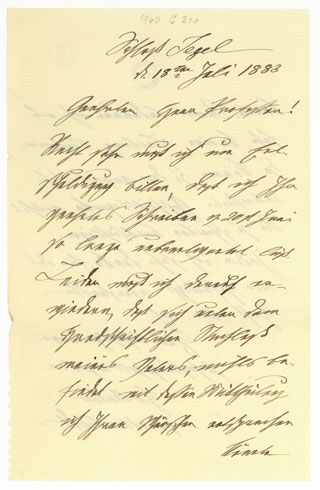 Schloß Tegel
d. 18ten Juli 1883
Geehrter Herr Professor!
Recht sehr muß ich um Ent-
schuldigung bitten, daß ich Ihr
geehrtes Schreiben v 20st Juni
so lange unbeantwortet ließ.
Leider muß ich darauf er-
wiedern, daß sich unter dem
handschriftlichen Nachlaß
meines Vaters, nichts be-
findet mit dessen Mittheilung
ich Ihren Wünschen entsprechen
könnte